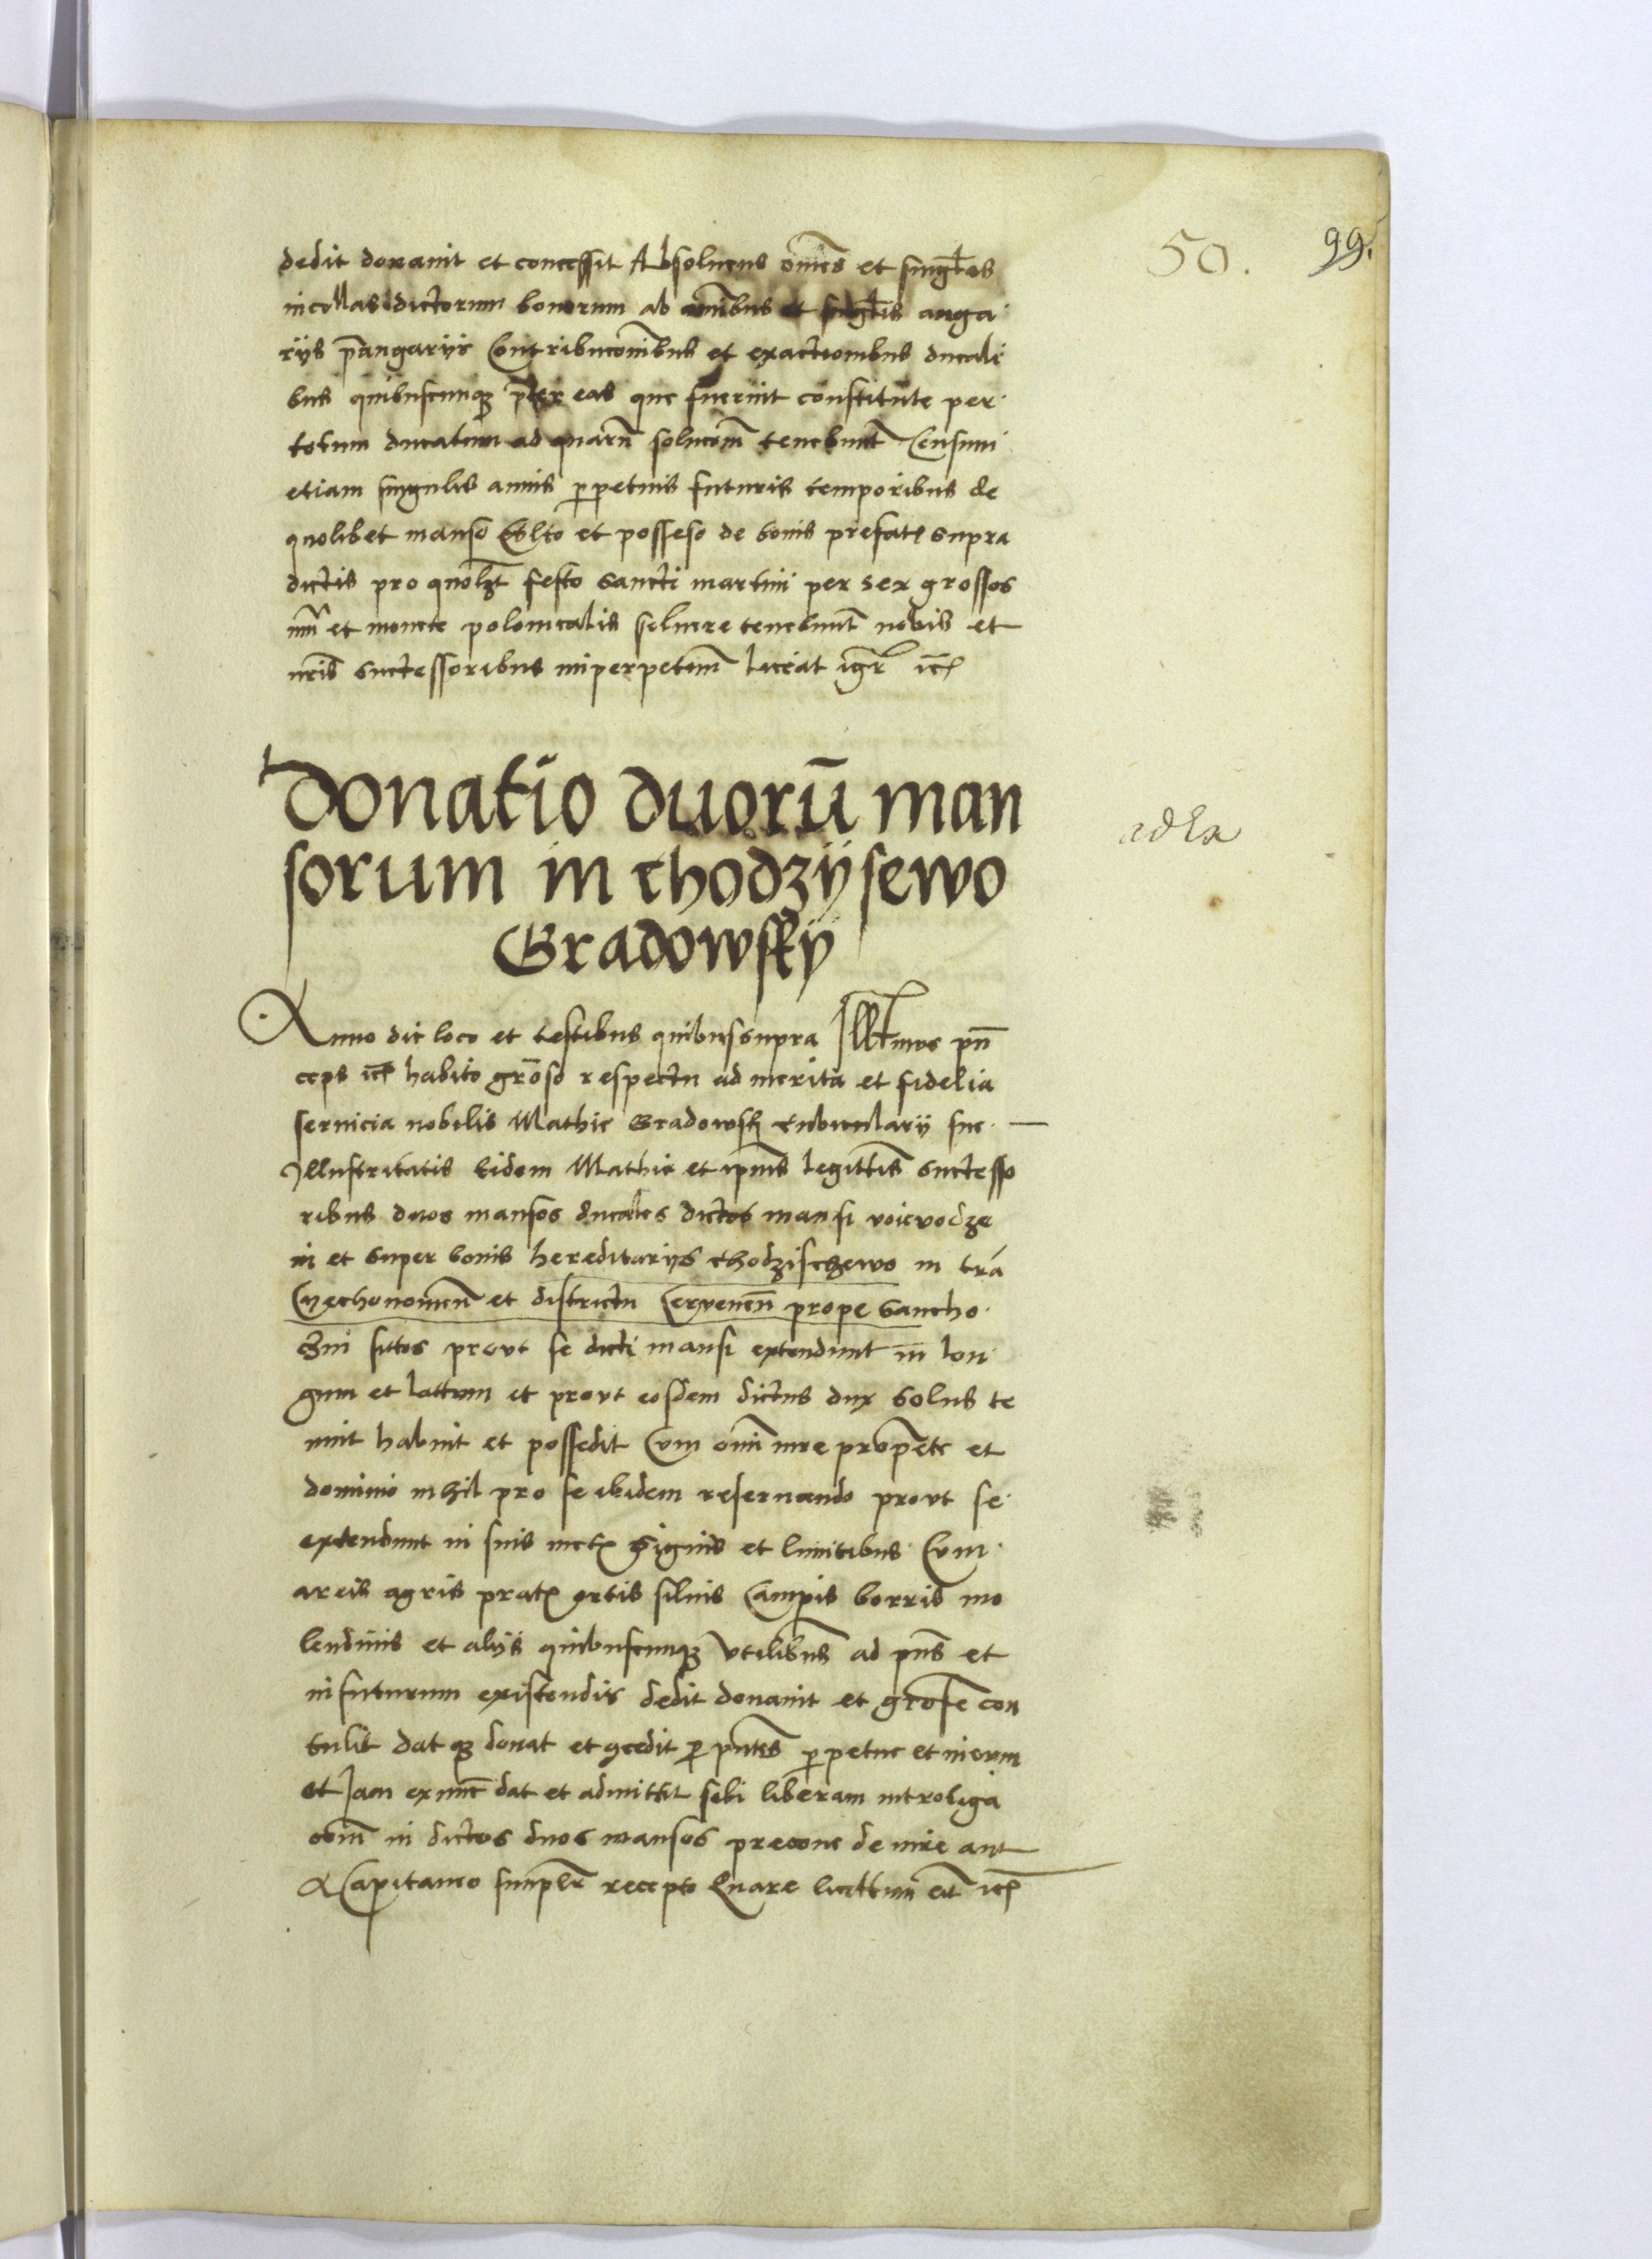 50. 99.
dedit donauit et concessit Absoluens om̄es et singl̄os
incollas dictorum bonorum ab om̄ibus et singl̄is anga
rijs p̄angarijs Contribuc̄onibus et exactionibus ducali
bus quibuscunqꝫ p̄ter eas que fuerint constitute per
totum ducatum ad quarū soluc̄om̄ tenebunt̄ Censum
etiam singulis annis ꝑpetuis futuris temporibus de
quolibet manso et possesso de bonis prefatꝭ supra
dictis pro quolꝫt festo sancti martini per sex grossos
et monete polonicalis soluere tenebunt̄ nobis et
nr̄is successoribus inperpetuum̄ Liceat igr̄ ic̄ꝭ
Donatio duorū man
sorum in chodzÿsewo
Gradowskÿ
ad Ex
Anno die loco et testibus quibus supra Illt̄mus prin̄
ceps ic̄ꝭ habito gr̄oso respectu ad merita et fidelia
seruicia nobilis Mathie Gradowskj Cubicularij sue
Illustritatis Eidem Mathie et ip̄ius legitt̄is successo
ribus duos mansos ducales dictos mansi voievodze
in et super bonis hereditarijs chodzischewo in tr̄a
Czechonomen̄ et districtu Cervenen̄ prope Sancho
czin sittos prout se dicti mansi extendunt in lon
gum et lattum et prout eosdem dictus dux solus te
nuit habuit et possedit Cum om̄i iure prop̄etc et
dominio nihil pro se ibidem reseruando prout se
extendunt in suis metꝭ Signis et limitibus Cum
areis agris pratꝭ ortis siluis Campis borris mo
lendinis et alijs quibuscunqꝫ vtilibus̄ ad pn̄s et
infuturum existendis dedit donauit et gr̄ose con
tulit dat qꝫ donat et ꝯcedit ꝑ pn̄tes ꝑpetue et in euum
et Jam exnunc dat et admittit sibi liberam introliga
c̄om̄ in dictos duos mansos precone de iure aut
A Capitaneo simplr̄ recepto Quare licittum̄ eit̄ ic̄ꝭ